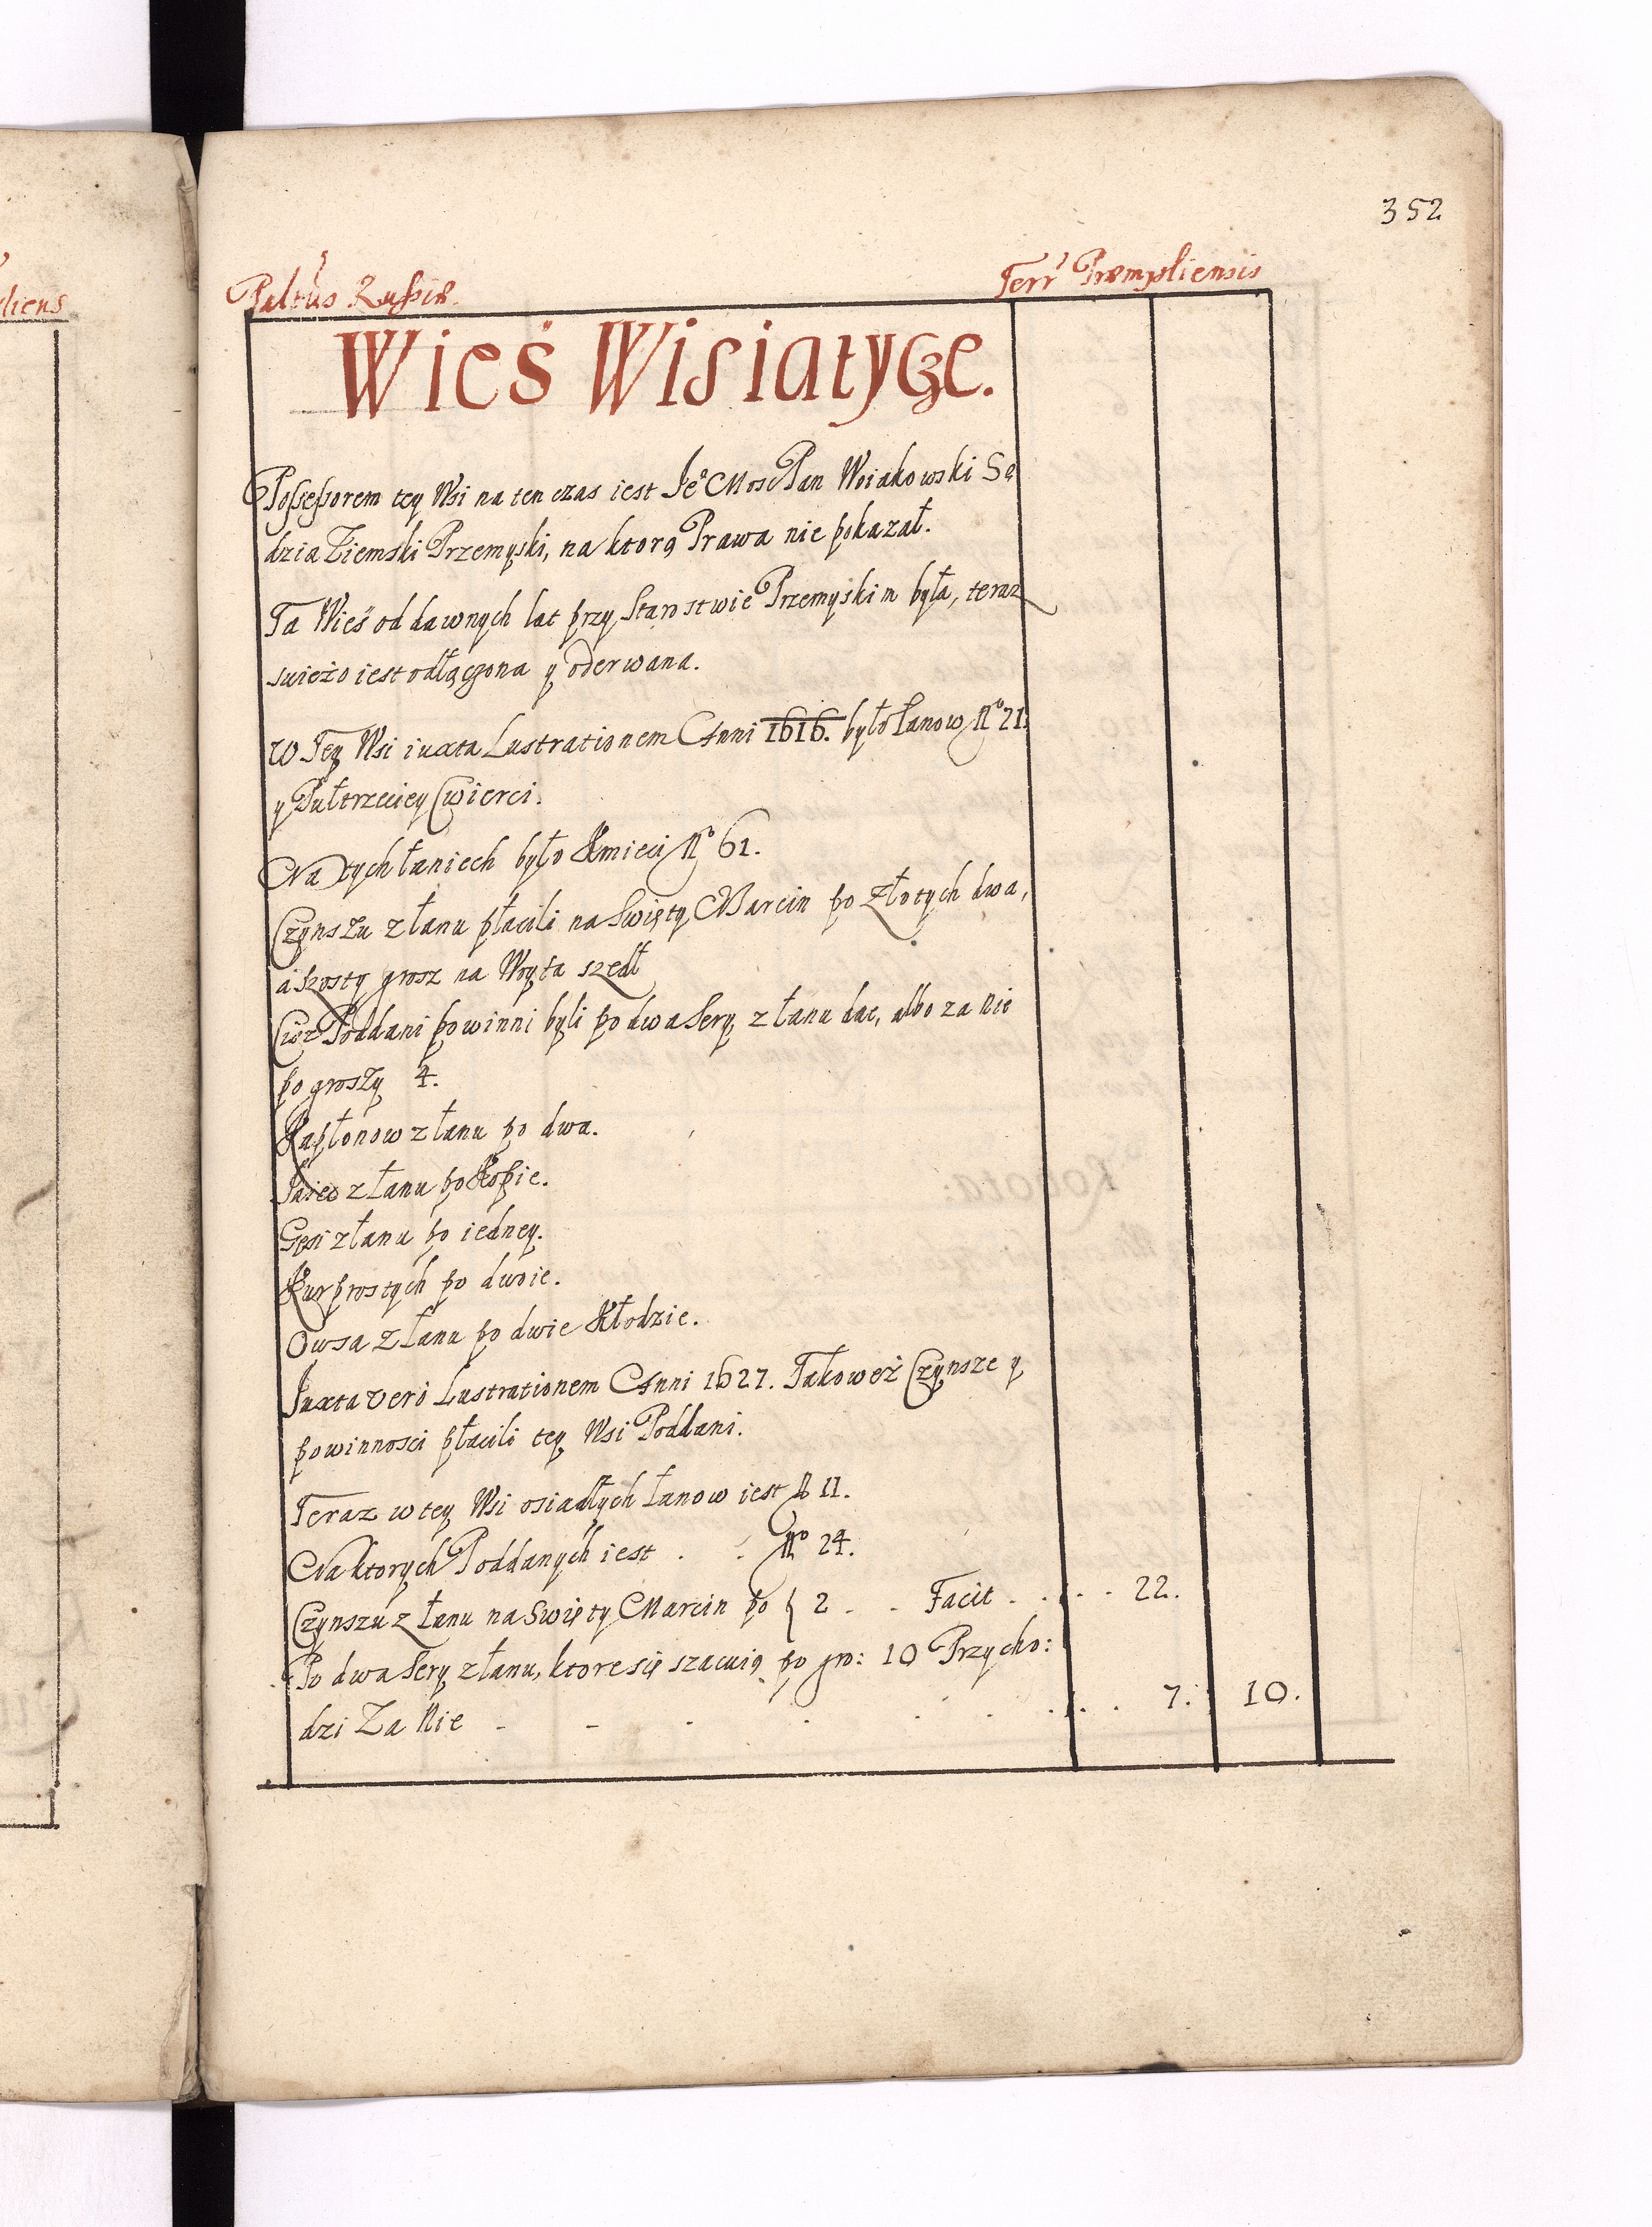 352
Paltus Russiæ.
Terr Præmysliensis
Wieś Wisiatycze.
Possessorem tey Wsi na ten czas iest Je° Mosc Pan Woiakowski Sę
dzia Ziemski Przemyski, na ktorą Prawa nie pokazał.
Ta Wieś od dawnych lat przy Starostwie Przemyskim była, teraz
swieżo iest odłączona y oderwana.
W Tey Wsi iuxta Lustrationem Anni 1616. było Łanow N° 21.
y Pułtrzeciey Cwierci.
Na tych łaniech było Kmieci N° 61.
Czynszu z łanu płacili na Swięty Marcin po złotych dwa,
a szosty grosz na Woyta szedł
Ciż Poddani powinni byli po dwa Sery z łanu dac, albo za nie
po groszy 4.
Kapłonow z łanu po dwa.
Jaiec z Łanu po Kopie.
Gęsi z łanu po iedney.
Kur prostych po dwoie.
Owsa z Łanu po dwie Kłodzie.
Juxta vero Lustrationem Anni 1627. Takoweż Czynsze y
powinnosci płacili tey Wsi Poddani.
Teraz w tey Wsi osiadłych Łanow iest N 11.
Na ktorych Poddanych iest . . N° 24.
Czynszu z Łanu na Swięty Marcin po f 2 . . Facit . . . . 22.
Po dwa Sery z łanu, ktore się szacuią po gro: 10 Przycho:
dzi Za Nie - - . . . . . . . 7. 10.